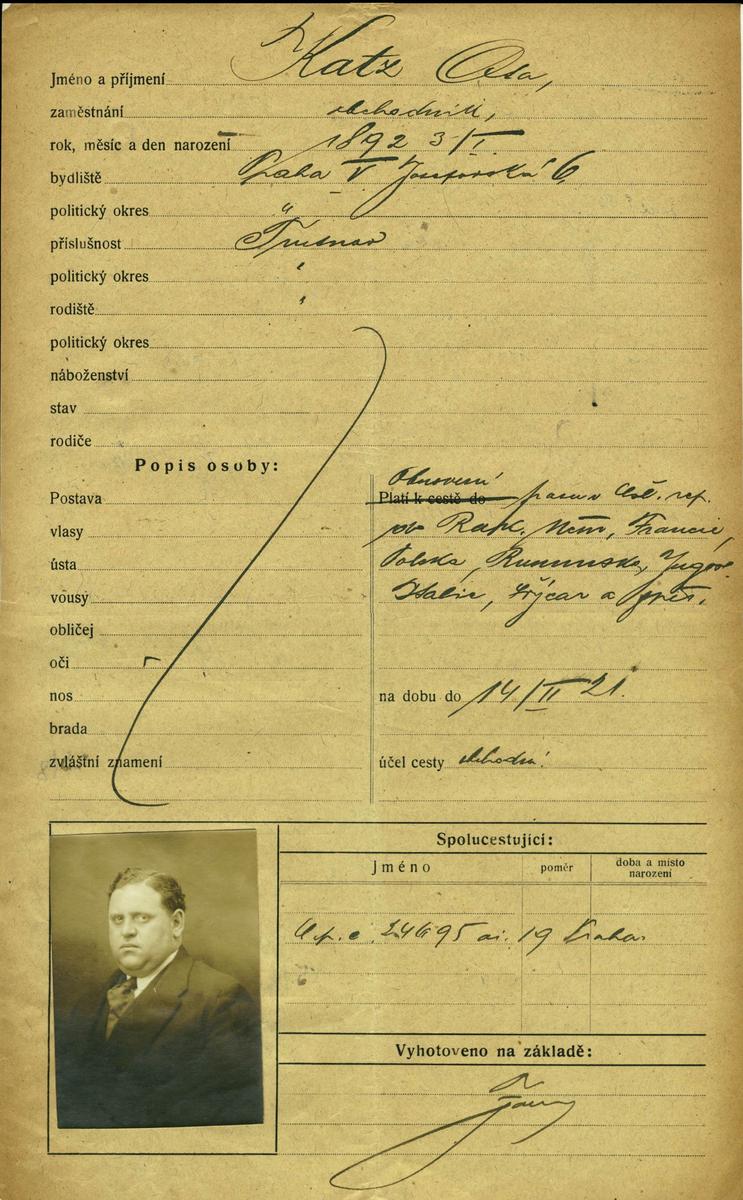 Jméno a příjmení Katz Ota,
zaměstnání obchodník,
rok, měsíc a den narození 1892 3/I
bydliště Praha V Josefovská 6
politický okres "
příslušnost Trutnov
politický okres "
rodiště "
politický okres
náboženství
stav
rodiče
Popis osoby:
Postava
vlasy
ústa
vousy
obličej
oči
nos
brada
zvláštní znamení
Obnovení
Platí k cestě do pasu v čsl. rep.
do Rak. Něm, Francie,
Polska, Rumunska, Jugosl.
Italie, Švýcar a zpět.
na dobu do 14/II 21.
účel cesty obchodní
Spolucestující:
Jméno poměr doba a místo narození
19 Praha
Vyhotoveno na základě: